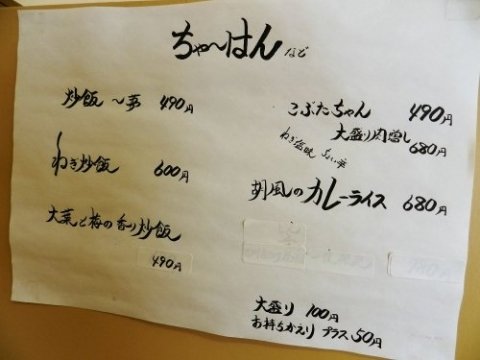 ちゃ〜はん など
炒飯 〜夢 490円
ねぎ炒飯 600円
大菜と梅の香り炒飯
490円
こぶたちゃん 490円
大盛り肉増し 680円
ねぎ塩味
胡風のカレーライス 680円
大盛り 100円
お持ちかえり プラス50円